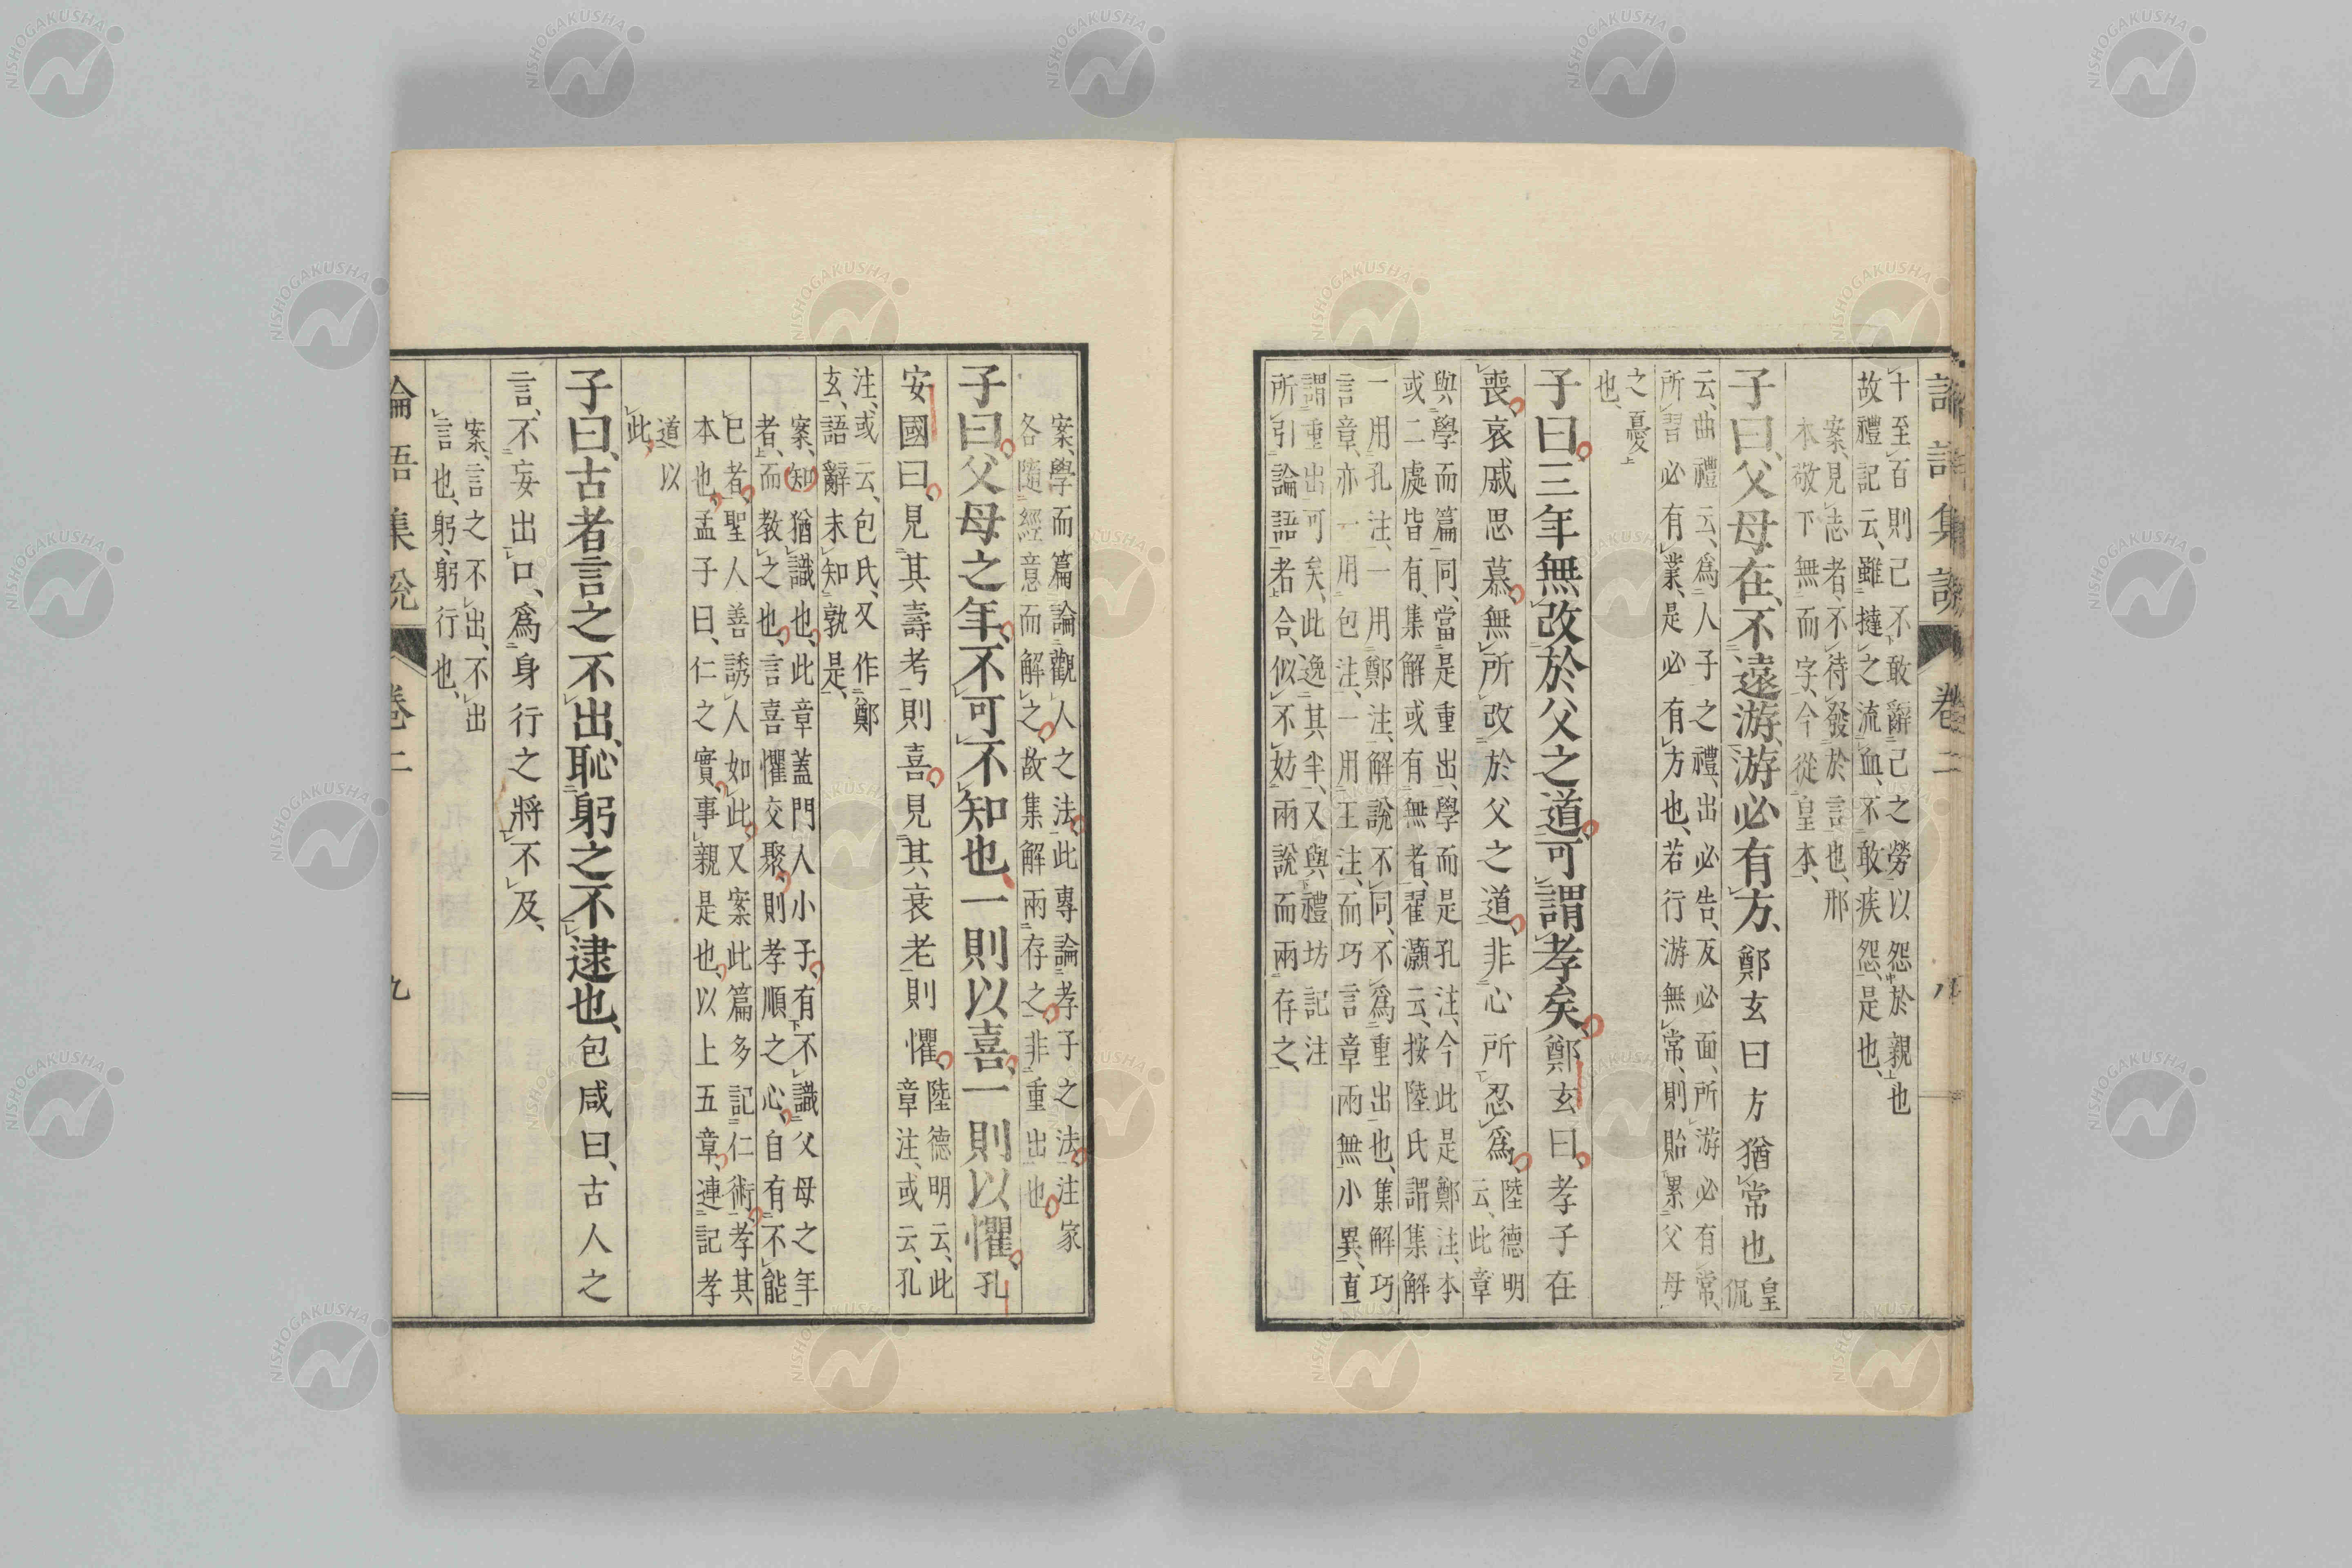 十至百則己不敢辭己之勞以怨於親也
故禮記云、雖撻之流血、不敢疾怨、是也、
案、見志者、不待發於言也、邢
本敬下無而字、今從皇本、
子曰、父母在、不遠游、游必有方、鄭玄曰方猶常也皇
侃
云、曲禮云、爲人子之禮、出必告、反必面、所游必有常、
所習必有業、是必有方也、若行游無常、則貽累父母
之憂
也、
子曰、三年無改於父之道、可謂孝矣、鄭玄曰、孝子在
喪、哀戚思慕、無所改於父之道、非心所忍爲、陸德明
云、此章
與學而篇同、當是重出、學而是孔注、今此是鄭注、本
或二處皆有、集解或有無者、翟灝云、按陸氏謂集解
一用孔注、一用鄭注、解說不同、不爲重出也、集解巧
言章、亦一用包注、一用王注、而巧言章兩無小異、直
謂重出可矣、此逸其半、又與禮坊記注
所引論語者合、似不妨兩說而兩存之、
案、學而篇論觀人之法、此專論孝子之法、注家
各隨經意而解之、故集解兩存之、非重出也、
子曰、父母之年、不可不知也、一則以喜、一則以懼、孔
安國曰、見其壽考則喜、見其衰老則懼、陸德明云、此
章注、或云、孔
注、或云、包氏、又作鄭
玄、語辭未知孰是、
案、知猶識也、此章蓋門人小子、有不識父母之年
者、而教之也、言喜懼交聚、則孝順之心、自有不能
已者、聖人善誘人如此、又案此篇多記仁術、孝其
本也、孟子曰、仁之實、事親是也、以上五章、連記孝
道以
此、
子曰、古者言之不出、恥躬之不逮也、包咸曰、古人之
言、不妄出口、爲身行之將不及、
案、言之不出、不出
言也、躬、躬行也、
論語集說 卷二 九
NISHOGAKUSHA